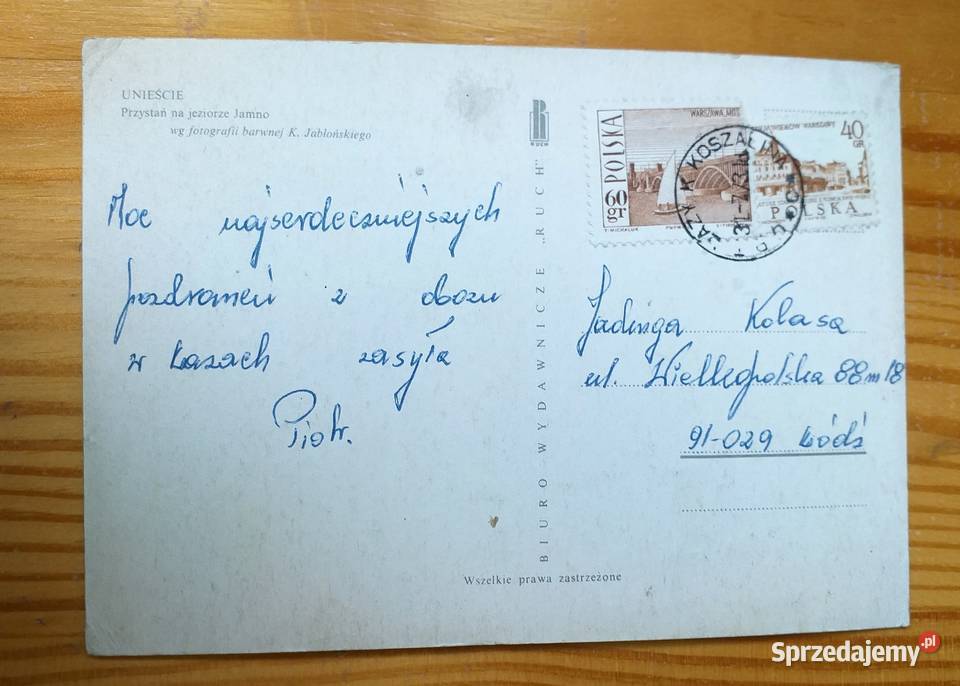 UNIEŚCIE
Przystań na jeziorze Jamno
wg fotografii barwnej K. Jabłońskiego
Moc najserdeczniejszych
pozdrowień z obozu
w Łazach zasyła
Piotr.
BIURO WYDAWNICZE „RUCH"
RUCH
POLSKA
60 gr
WARSZAWA, MOST
40 GR
POLSKA
ŁAZY K KOSZALINA
Jadwiga Kolasa
ul. Wielkopolska 88 m 18
91-029 Łódź
Wszelkie prawa zastrzeżone
Sprzedajemy.pl